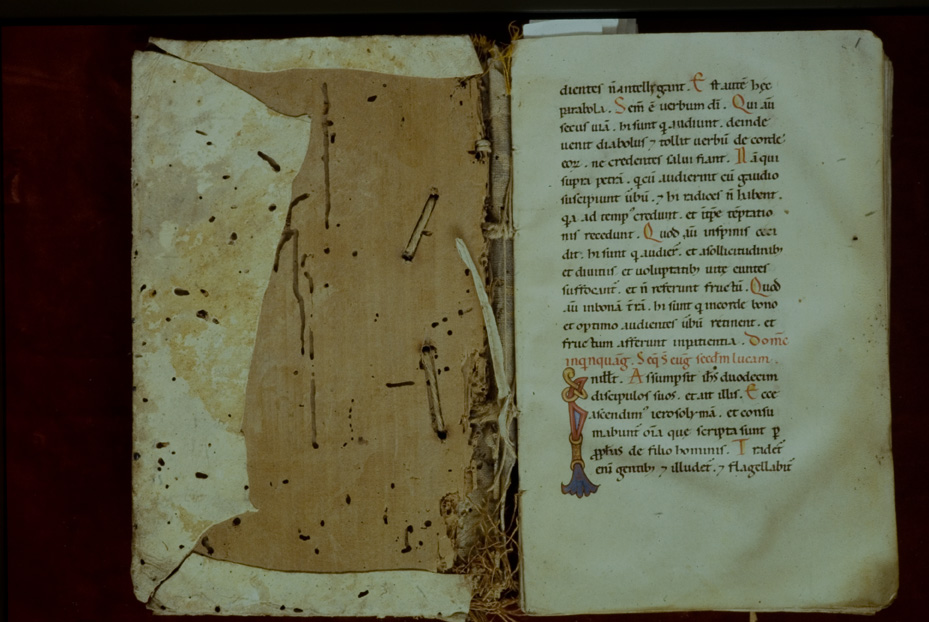 dientes n̄ intellegant. Est aute᷑ hęc
parabola. Sem̄ ē verbum dı̄. Qui aū
secus uiā. hi sunt q̇ audiunt. deinde
uenit diabolus ⁊ tollit uerbū de corde
eoꝝ. ne credentes salui fiant. Nā qui
supra petrā. q cū audierint cū gaudio
suscipiunt ūbū. ⁊ hi radices n̄ habent.
q̇a ad temp᾿ credunt. et ītp̄e tēptatio
nis recedunt. Quod aū inspinis ceci
dit. hi sunt q̇ audier̄. et asollicitudinib;
et diuitiis et uoluptatib; uitę euntes
suffocant̄. et n̄ referunt fructū. Quod
aū inbonā t̄rā. hi sunt q̇ incorde bono
et optimo audientes ūbū retinent. et
fructum afferunt inpatientia. Domīc
in quinquāg. Seq̄ S̄ eūg sc̄dm lucam.
In illt̄. Assumpsit ih̄s duodecim
discipulos suos. et ait illis. Ecce
ascendim᾿ ierosolimā. et consu
mabunt̄ oīa que scripta sunt p̱
pphas de filio hominis. Tradet̄
eni᷑ gentib; ⁊ illudet̄. ⁊ flagellabit̄